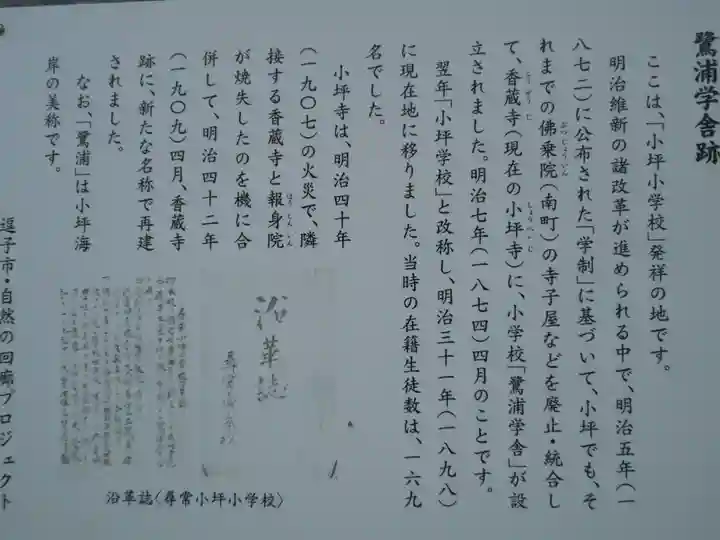 鷺浦学舎跡
ここは、「小坪小学校」発祥の地です。
明治維新の諸改革が進められる中で、明治五年(一
八七二)に公布された「学制」に基づいて、小坪でも、そ
れまでの佛乗院(南町)の寺子屋などを廃止・統合し
て、香蔵寺(現在の小坪寺)に、小学校「鷺浦学舎」が設
立されました。明治七年(一八七四)四月のことです。
翌年「小坪学校」と改称し、明治三十一年(一八九八)
に現在地に移りました。当時の在籍生徒数は、一六九
名でした。
小坪寺は、明治四十年
(一九〇七)の火災で、隣
接する香蔵寺と報身院
が焼失したのを機に合
併して、明治四十二年
(一九〇九)四月、香蔵寺
跡に、新たな名称で再建
されました。
なお、「鷺浦」は小坪海
岸の美称です。
沿革誌
沿革誌(尋常小坪小学校)
逗子市・自然の回廊プロジェクト